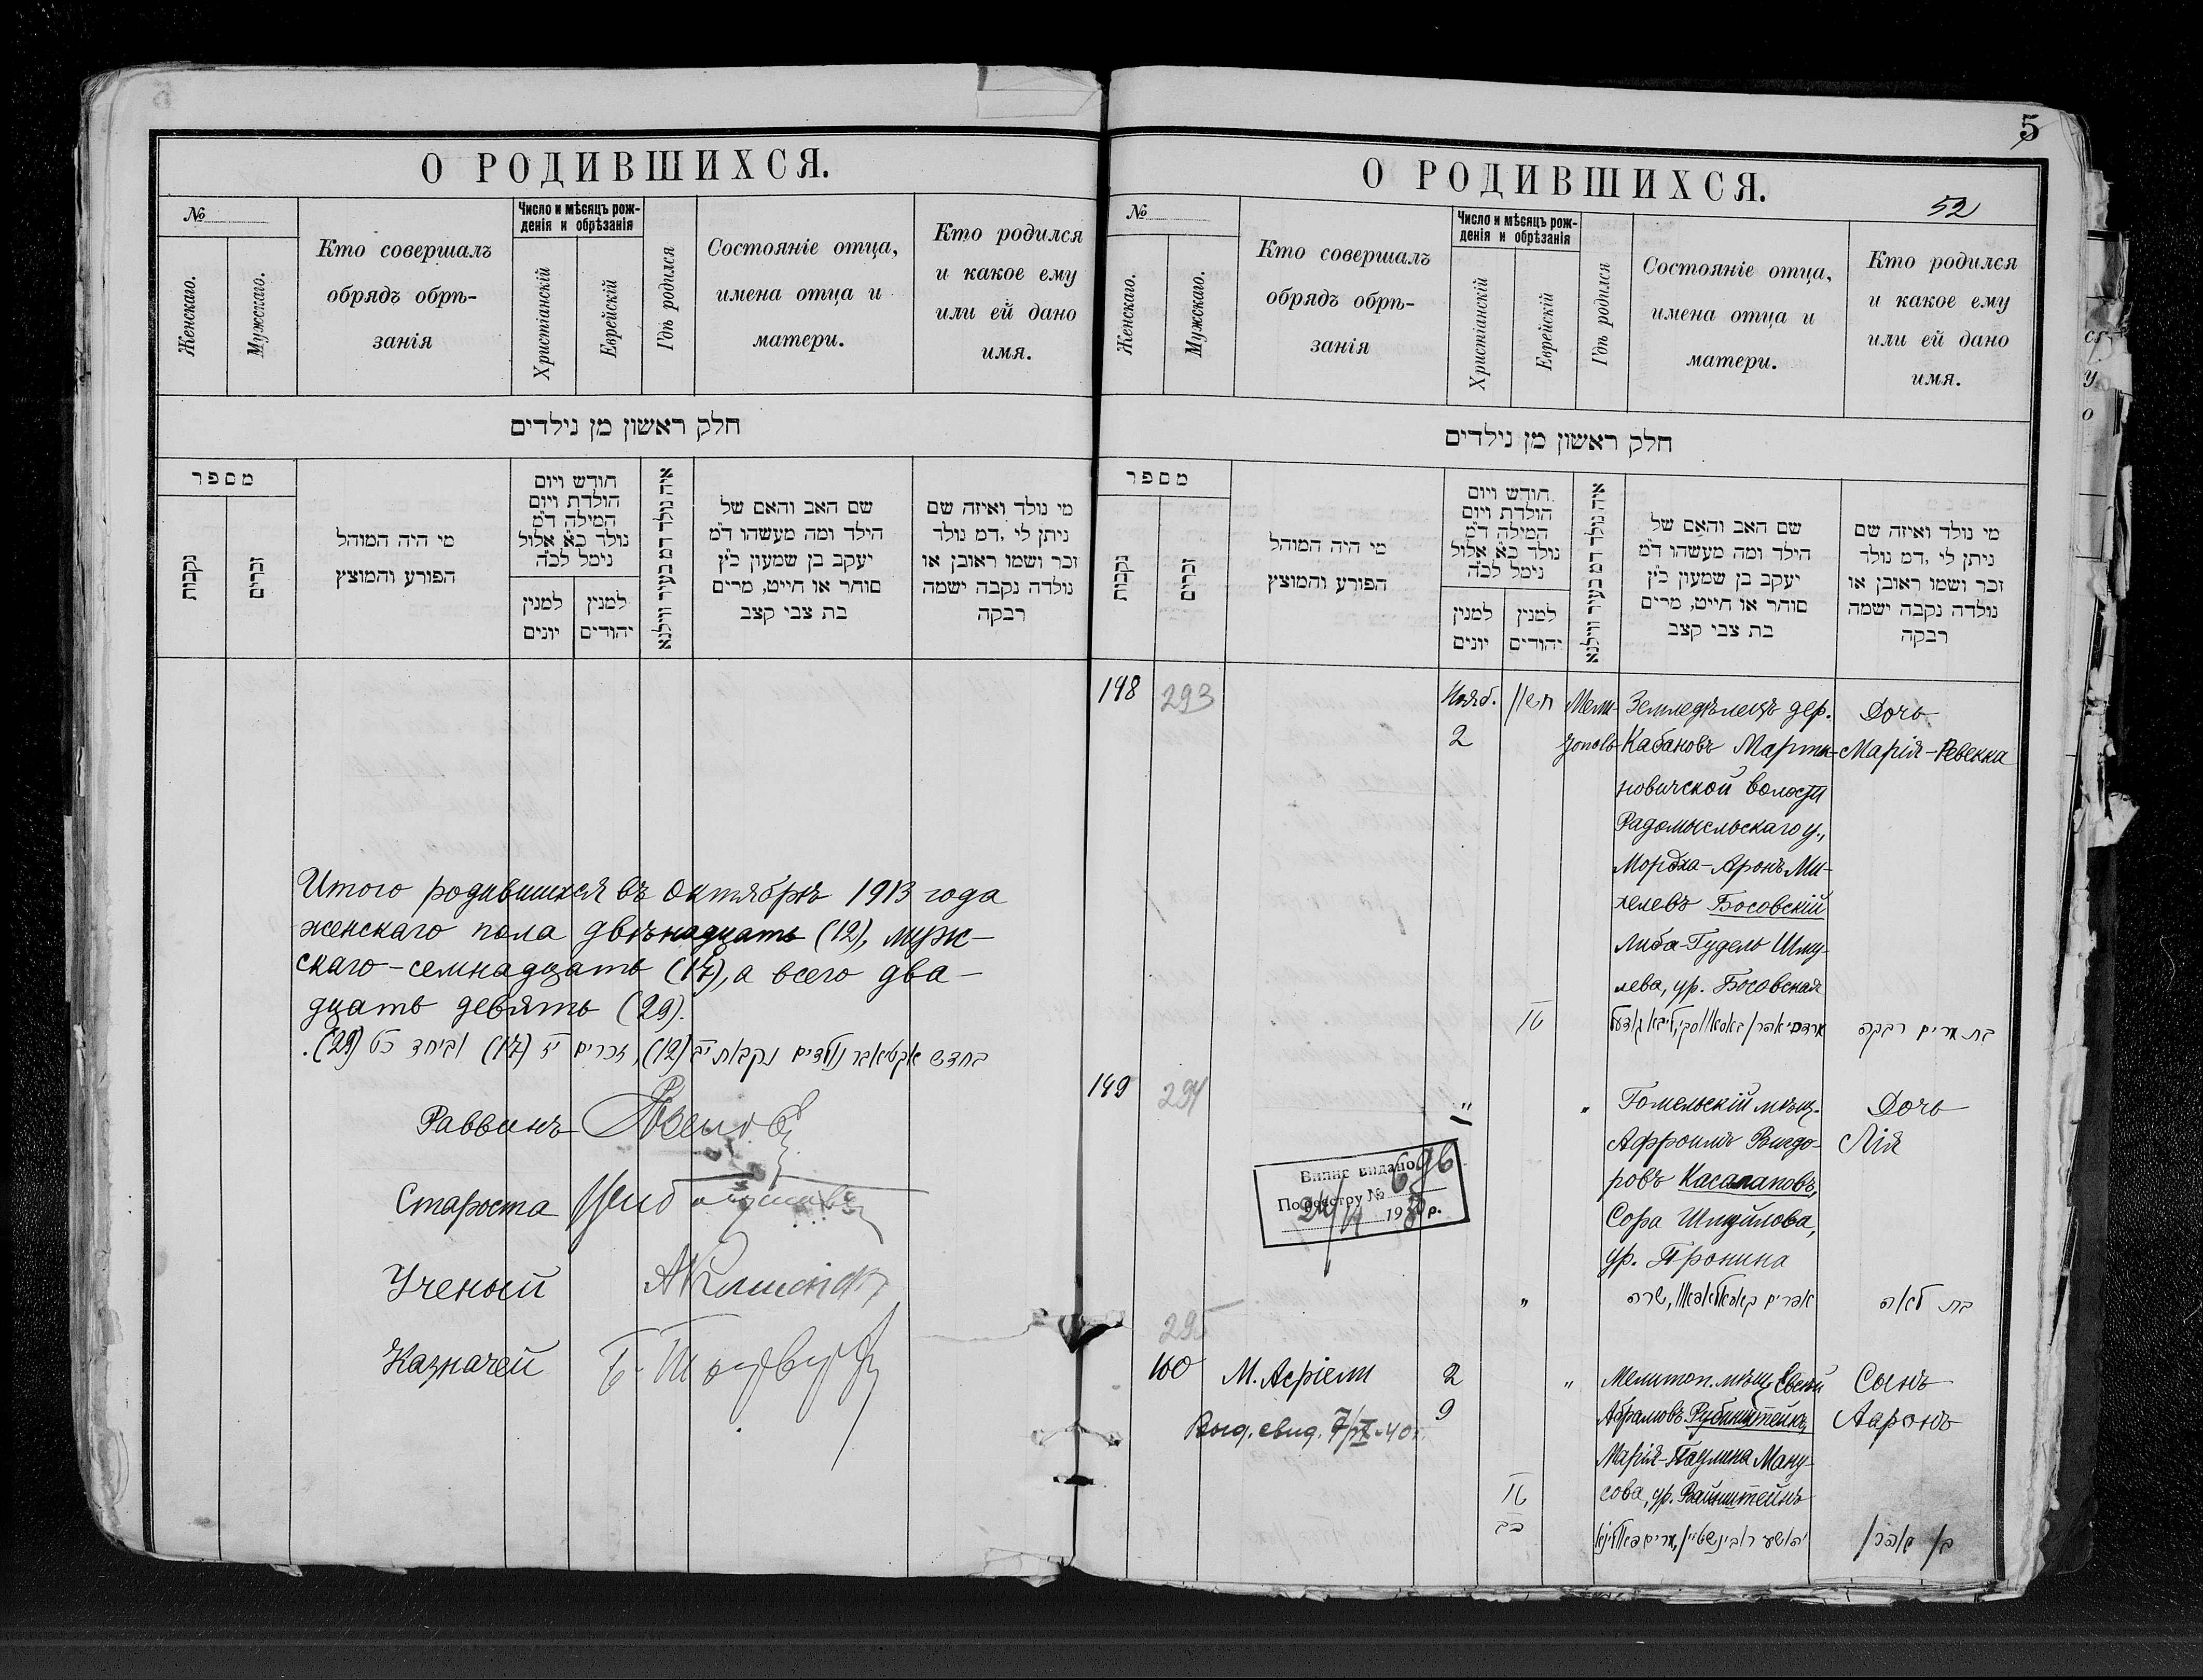 О РОДИВШИХСЯ.
№
Женскаго.
Мужскаго.
Кто совершалъ
обрядъ обрѣ-
занія
Число и мѣсяцъ рож-
денія и обрѣзанія
Христіанскій
Еврейскій
Гдѣ родился
Состояніе отца,
имена отца и
матери.
Кто родился
и какое ему
или ей дано
имя.
חלק ראשון מן נילדים
מספר
נקבות
זכרים
מי היה המוהל
הפורע והמוצץ
חודש ויום
הולדת ויום
המילה ד״מ
נולד כ״א אלול
נימל לכ״ה
למנין
יונים
למנין
יהודים
איה נולד דמ בעיר ווילנא
שם האב והאם של
הילד ומה מעשהו ד״מ
יעקב בן שמעון כ״ץ
סוחר או חייט, מרים
בת צבי קצב
מי נולד ואיזה שם
ניתן לי ,דמ נולד
זכר ושמו ראובן או
נולדה נקבה ישמה
רבקה
Итого родившихся въ октябрѣ 1913 года
женскаго пола двѣнадцать (12), муж-
скаго - семнадцать (17), а всего два-
дцать девять (29).
בחדש אקטיאבר נולדים נקבות י״ב (12), זכרים י״ז (17) וביחד כ״ט (29).
Раввинъ
Староста
Ученый
Казначей
5
О РОДИВШИХСЯ.
52
№
Женскаго.
Мужскаго.
Кто совершалъ
обрядъ обрѣ-
занія
Число и мѣсяцъ рож-
денія и обрѣзанія
Христіанскій
Еврейскій
Гдѣ родился
Состояніе отца,
имена отца и
матери.
Кто родился
и какое ему
или ей дано
имя.
חלק ראשון מן נילדים
מספר
נקבות
זכרים
מי היה המוהל
הפורע והמוצץ
חודש ויום
הולדת ויום
המילה ד״מ
נולד כ״א אלול
נימל לכ״ה
למנין
יונים
למנין
יהודים
איה נולד דמ בעיר ווילנא
שם האב והאם של
הילד ומה מעשהו ד״מ
יעקב בן שמעון כ״ץ
סוחר או חייט, מרים
בת צבי קצב
מי נולד ואיזה שם
ניתן לי ,דמ נולד
זכר ושמו ראובן או
נולדה נקבה ישמה
רבקה
148 293 Нояб. חשון Мели- Земледѣлецъ дер. Дочь
2 тополь Кабановъ Марти- Марія-Ревекка
новичской волости
Радомысльскаго у.,
Мордха-Аронъ Ми-
хелевъ Босовскій
Либа-Гудель Шму-
лева, ур. Босовская
בת מרים רבקה
149 294 " " Гомельскій мѣщ. Дочь
Афроимъ Вигдо- Лія
ровъ Касалаповъ,
Сора Шмуйлова,
ур. Пронина
Випис видано 696
По реєстру №
193 р.
" בת לאה
295
100 М. Асріели 2 " Мелитоп. мѣщ. Овсей Сынъ
Выд. свид. 7/IX-40г. 9 Абрамовъ Рубинштейнъ, Ааронъ
Марія-Паулина Ману-
сова, ур. Вайнштейнъ
יהושע רובינשטיין, מרים פאולינא בן אהרן